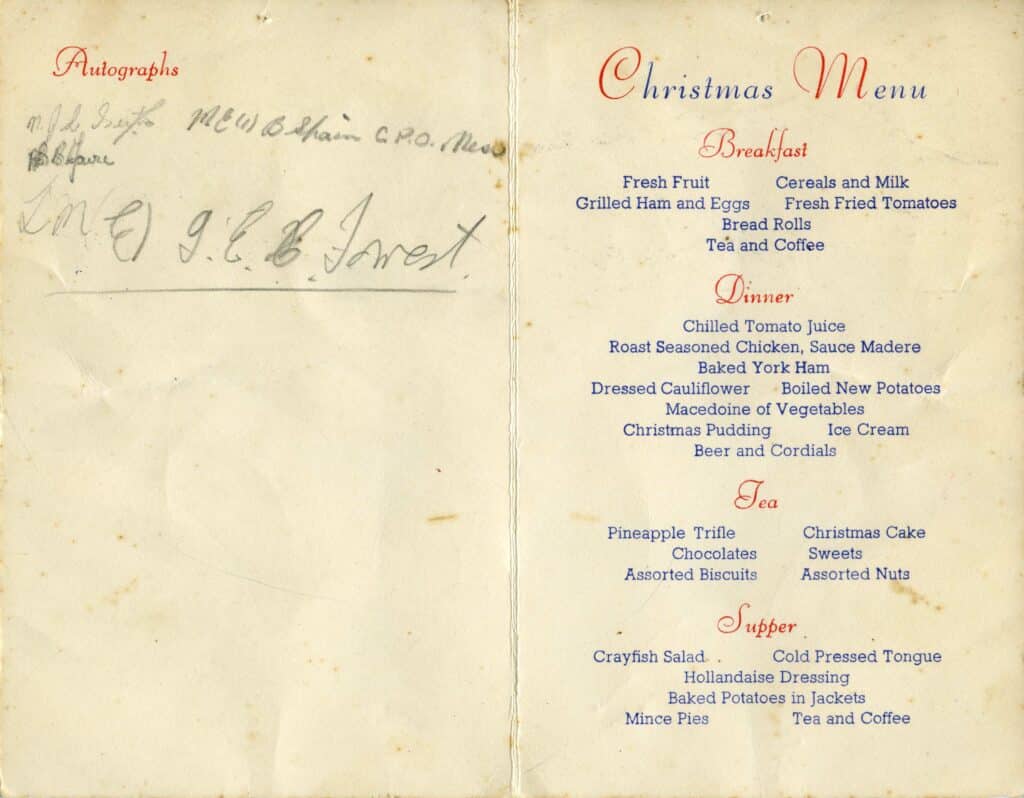 Autographs
B Spain C.P.O. Mess
G. E. B. Forest.
Christmas Menu
Breakfast
Fresh Fruit Cereals and Milk
Grilled Ham and Eggs Fresh Fried Tomatoes
Bread Rolls
Tea and Coffee
Dinner
Chilled Tomato Juice
Roast Seasoned Chicken, Sauce Madere
Baked York Ham
Dressed Cauliflower Boiled New Potatoes
Macedoine of Vegetables
Christmas Pudding Ice Cream
Beer and Cordials
Tea
Pineapple Trifle Christmas Cake
Chocolates Sweets
Assorted Biscuits Assorted Nuts
Supper
Crayfish Salad Cold Pressed Tongue
Hollandaise Dressing
Baked Potatoes in Jackets
Mince Pies Tea and Coffee